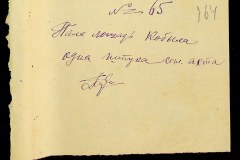 № 65
164
Пала лошадь Кобыла
одна штука см. акта